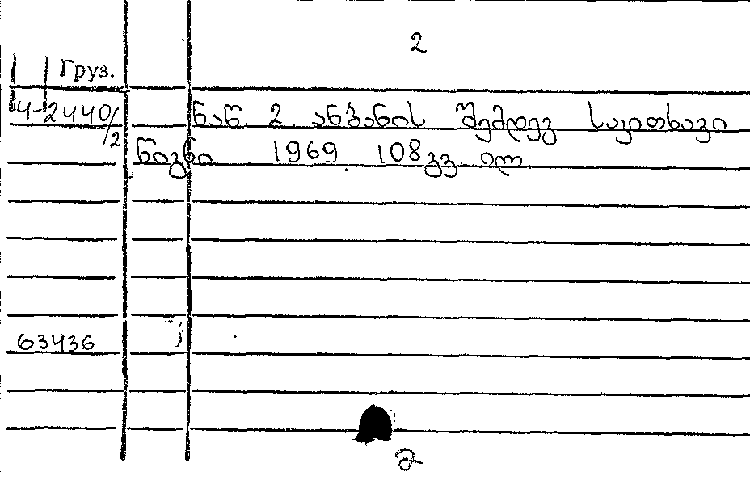 2
Груз.
4-2440/2 ნაწ 2 ანბანის შემდეგ საკითხავი
წიგნი 1969 108გვ ილ
63436